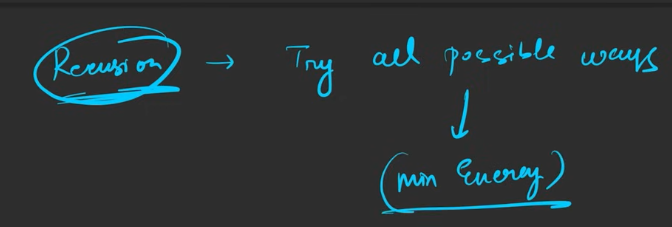 Recursion → Try all possible ways
(min Energy)